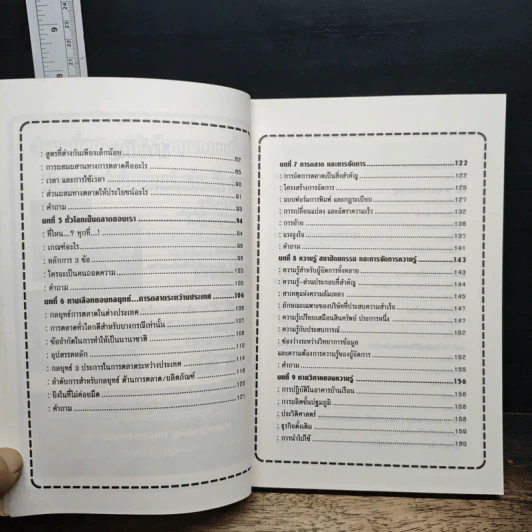 : สูตรที่ต่างกันเพียงเล็กน้อย 82
: การผสมผสานทางการตลาดคืออะไร 85
: เวลา และการใช้เวลา 90
: ส่วนผสมทางตลาดให้ประโยชน์อะไร 93
: คำถาม 93
บทที่ 5 ทั่วโลกเป็นตลาดของเรา 94
: ที่ไหน...? ทุกที่...! 95
: เกณฑ์อะไร 98
: หลักการ 3 ข้อ 98
: ใครจะเป็นคนถอดความ 103
: คำถาม 105
บทที่ 6 ทางเลือกของกลยุทธ์...การตลาดระหว่างประเทศ 106
: กลยุทธ์การตลาดในต่างประเทศ
: การตลาดทั่วโลกดีสำหรับบางกรณีเท่านั้น
: ข้อจำกัดในการทำให้เป็นนานาชาติ
: อุปสรรคหลัก
: กลยุทธ์ 3 ประการในการตลาดระหว่างประเทศ 114
: ลำดับการสำหรับกลยุทธ์ ด้านการตลาด/ผลิตภัณฑ์ 118
: ยิงในที่ไม่ค่อยมืด 120
: คำถาม 121
บทที่ 7 การตลาด และการจัดการ 122
: การจัดการตลาดเป็นสิ่งสำคัญ 122
: โครงสร้างการจัดการ 126
: แบบฟอร์มการพิมพ์ และกฎระเบียบ 127
: การเปลี่ยนแปลง และอัตราความเร็ว 132
: การย้าย 136
: แรงจูงใจ 137
: คำถาม 141
บทที่ 8 ความรู้ สถาปัตยกรรม และการจัดการความรู้ 143
: ความรู้สำหรับผู้จัดการทั้งหลาย 143
: ความรู้-ส่วนประกอบที่สำคัญ 145
: สาเหตุแห่งความล้มเหลว 146
: ลักษณะเฉพาะของบริษัทที่ประสบความสำเร็จ
: ความรู้เปรียบเสมือนสินทรัพย์ ประการหนึ่ง 147
: ความรู้กับประสบการณ์ 152
: ช่องว่างระหว่างวิทยาการข้อมูล
และความต้องการความรู้ของผู้จัดการ 152
: คำถาม 155
บทที่ 9 กายวิภาคของความรู้ 156
: การปฏิบัติในอาคารบ้านเรือน 156
: การผลิตขั้นปฐมภูมิ 158
: ประวัติศาสตร์ 158
: ธุรกิจดั้งเดิม 159
: การนำไปใช้ 160